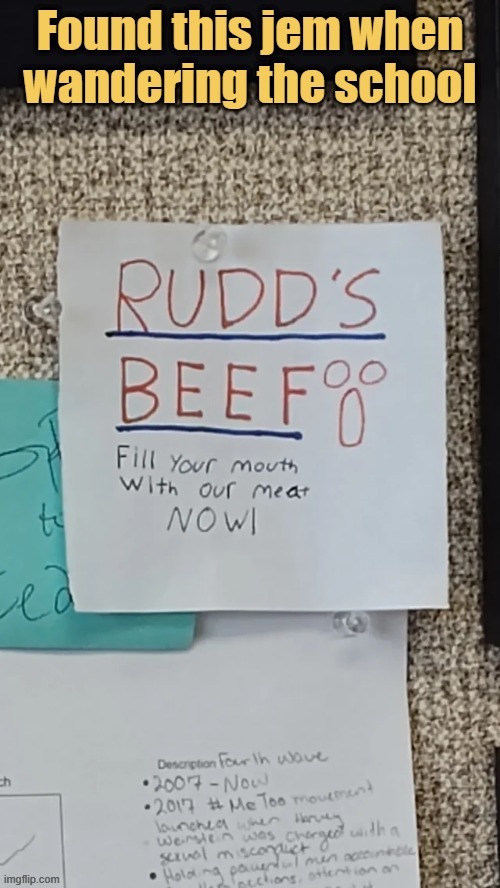 Found this jem when
wandering the school
RUDD'S
BEEF
Fill Your mouth
With our meat
NOW!
Description Fourth wave
• 2007 - Now
• 2017 #MeToo movement
launched when Harvey
Weinstein was charged with a
sexual misconduct
• Holding powerful men accountable
actions, attention on
imgflip.com